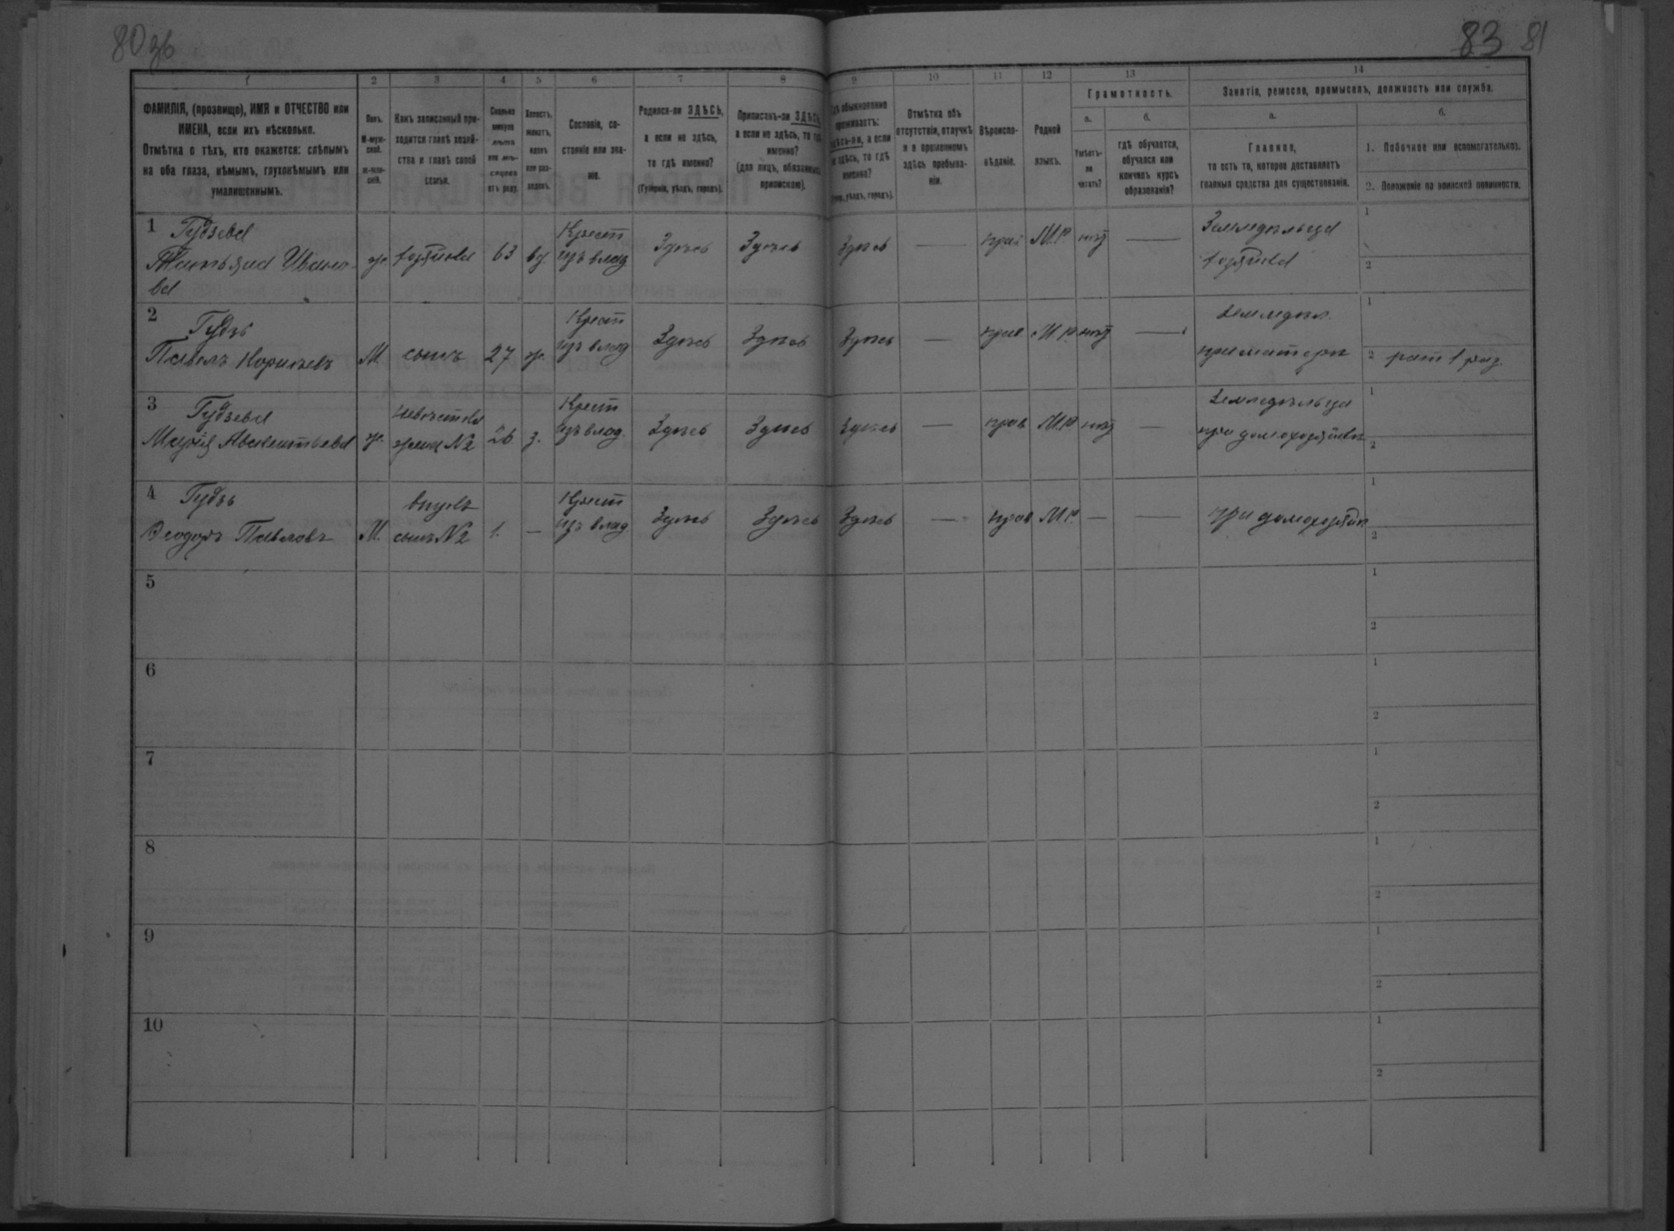 80 об
83 81
1 2 3 4 5 6 7 8 9 10 11 12 13 14
ФАМИЛІЯ, (прозвище), ИМЯ и ОТЧЕСТВО или
ИМЕНА, если ихъ нѣсколько.
Отмѣтка о тѣхъ, кто окажется: слѣпымъ
на оба глаза, нѣмымъ, глухонѣмымъ или
умалишеннымъ.
Полъ.
М-муж-
ской.
Ж-жен-
скій.
Какъ записанный при-
ходится главѣ хозяй-
ства и главѣ своей
семьи.
Сколько
минуло
лѣтъ
или мѣ-
сяцевъ
отъ роду.
Холостъ,
женатъ,
вдовъ
или раз-
веденъ.
Сословіе, со-
стояніе или зва-
ніе.
Родился-ли ЗДѢСЬ,
а если не здѣсь,
то гдѣ именно?
(Губернія, уѣздъ, городъ).
Приписанъ-ли ЗДѢСЬ,
а если не здѣсь, то гдѣ
именно?
(для лицъ, обязанныхъ
припискою).
Гдѣ обыкновенно
проживаетъ:
здѣсь-ли, а если
не здѣсь, то гдѣ
именно?
уѣздъ, городъ).
Отмѣтка объ
отсутствіи, отлучкѣ
и о временномъ
здѣсь пребыва-
ніи.
Вѣроиспо-
вѣданіе.
Родной
языкъ.
Грамотность.
а.
Умѣетъ-
ли
читать?
б.
гдѣ обучается,
обучался или
кончилъ курсъ
образованія?
Занятіе, ремесло, промыселъ, должность или служба.
а.
Главное,
то есть то, которое доставляетъ
главныя средства для существованія.
б.
1. Побочное или вспомогательное.
2. Положеніе по воинской повинности.
1 Гудзева Крест Земледѣльца
Татьяна Ивано- ж. хозяйка 63 вд изъ влад Здѣсь Здѣсь Здѣсь — прав М.Р. нѣт — хозяйка
ва
2 Гудзь Крест Земледѣл.
Павелъ Корнѣевъ М сынъ 27 ж. изъ влад Здѣсь Здѣсь Здѣсь — прав М.Р. нѣт — при матери 2 рат 1 раз
3 Гудзева невѣстка Крест Земледѣльца
Марія Авксентьева ж. жена №2 26 з. изъ влад. Здѣсь Здѣсь Здѣсь — прав М.Р. нѣт — при домохозяйкѣ
4 Гудзь внукъ Крест
Ѳеодоръ Павловъ М. сынъ №2 1. — изъ влад. Здѣсь Здѣсь Здѣсь — прав М.Р. — — при домохозяйк
5
6
7
8
9
10